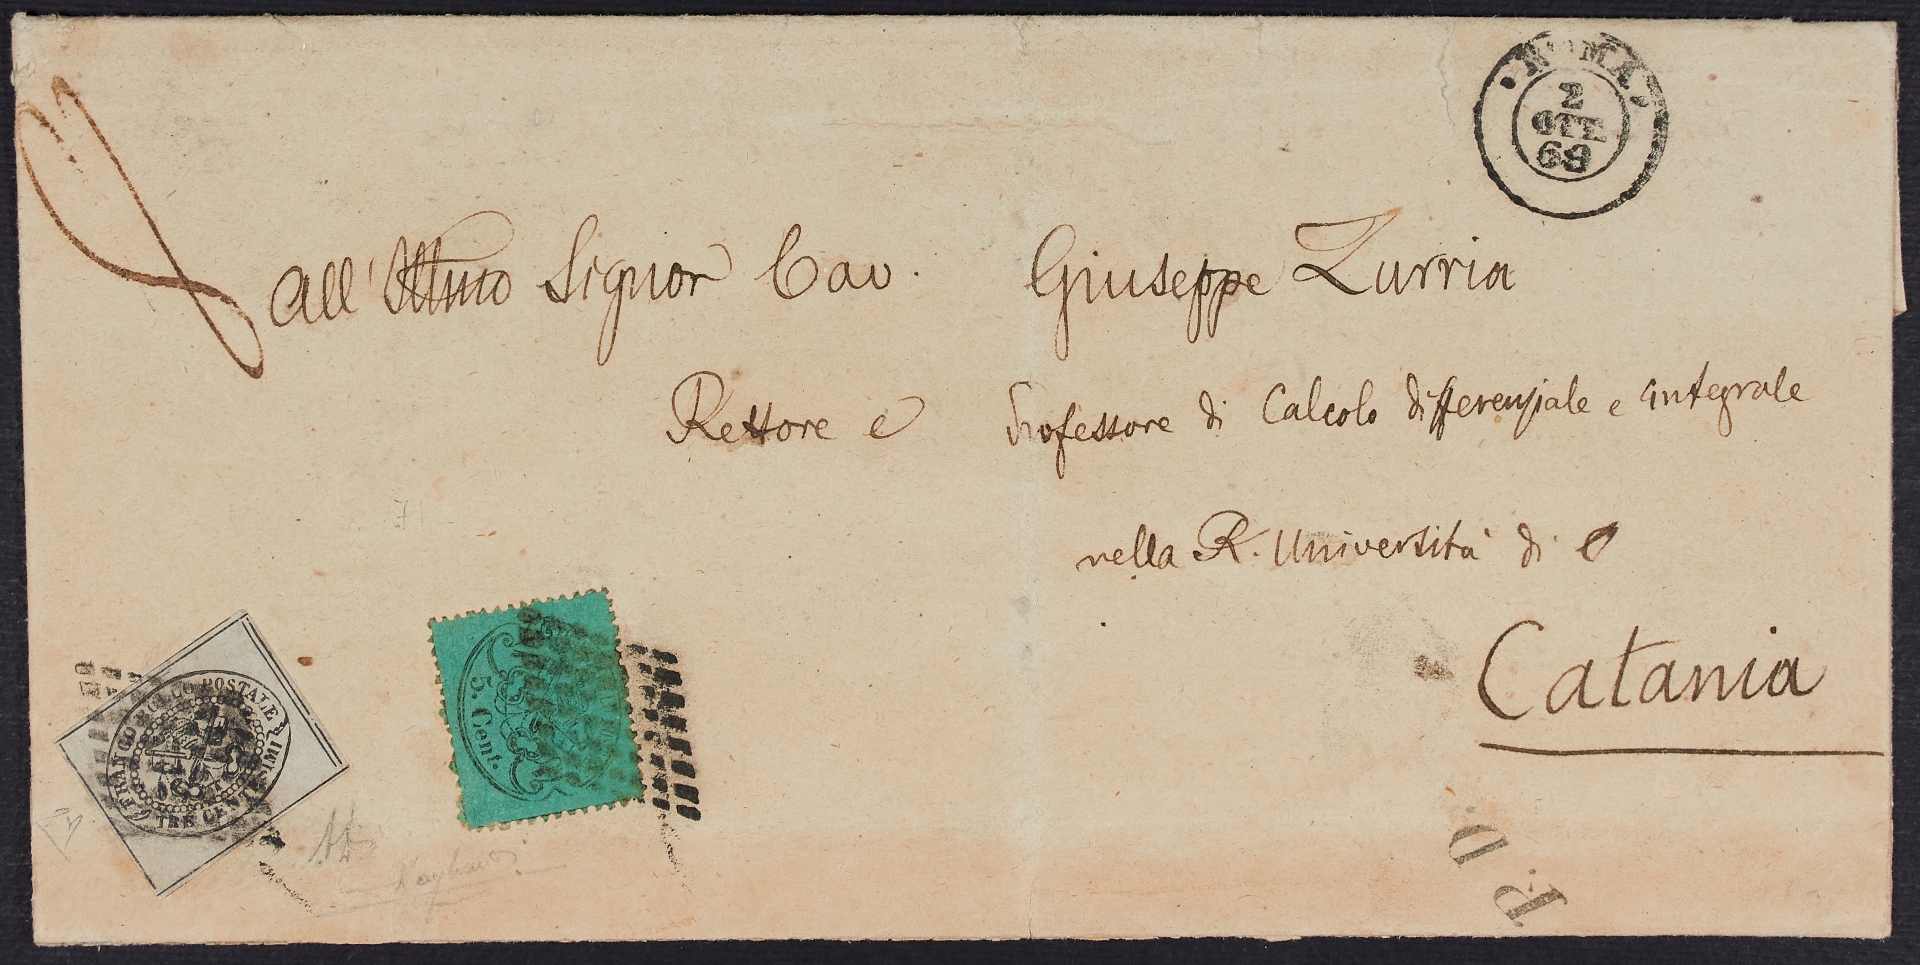 ROMA
2
OTT
69
All'Illmo Signor Cav. Giuseppe Zurria
Rettore e Professore di Calcolo differenziale e integrale
nella R. Università di
Catania
FRANCO BOLLO POSTALE
TRE CENTESIMI
5. Cent.
P. D.